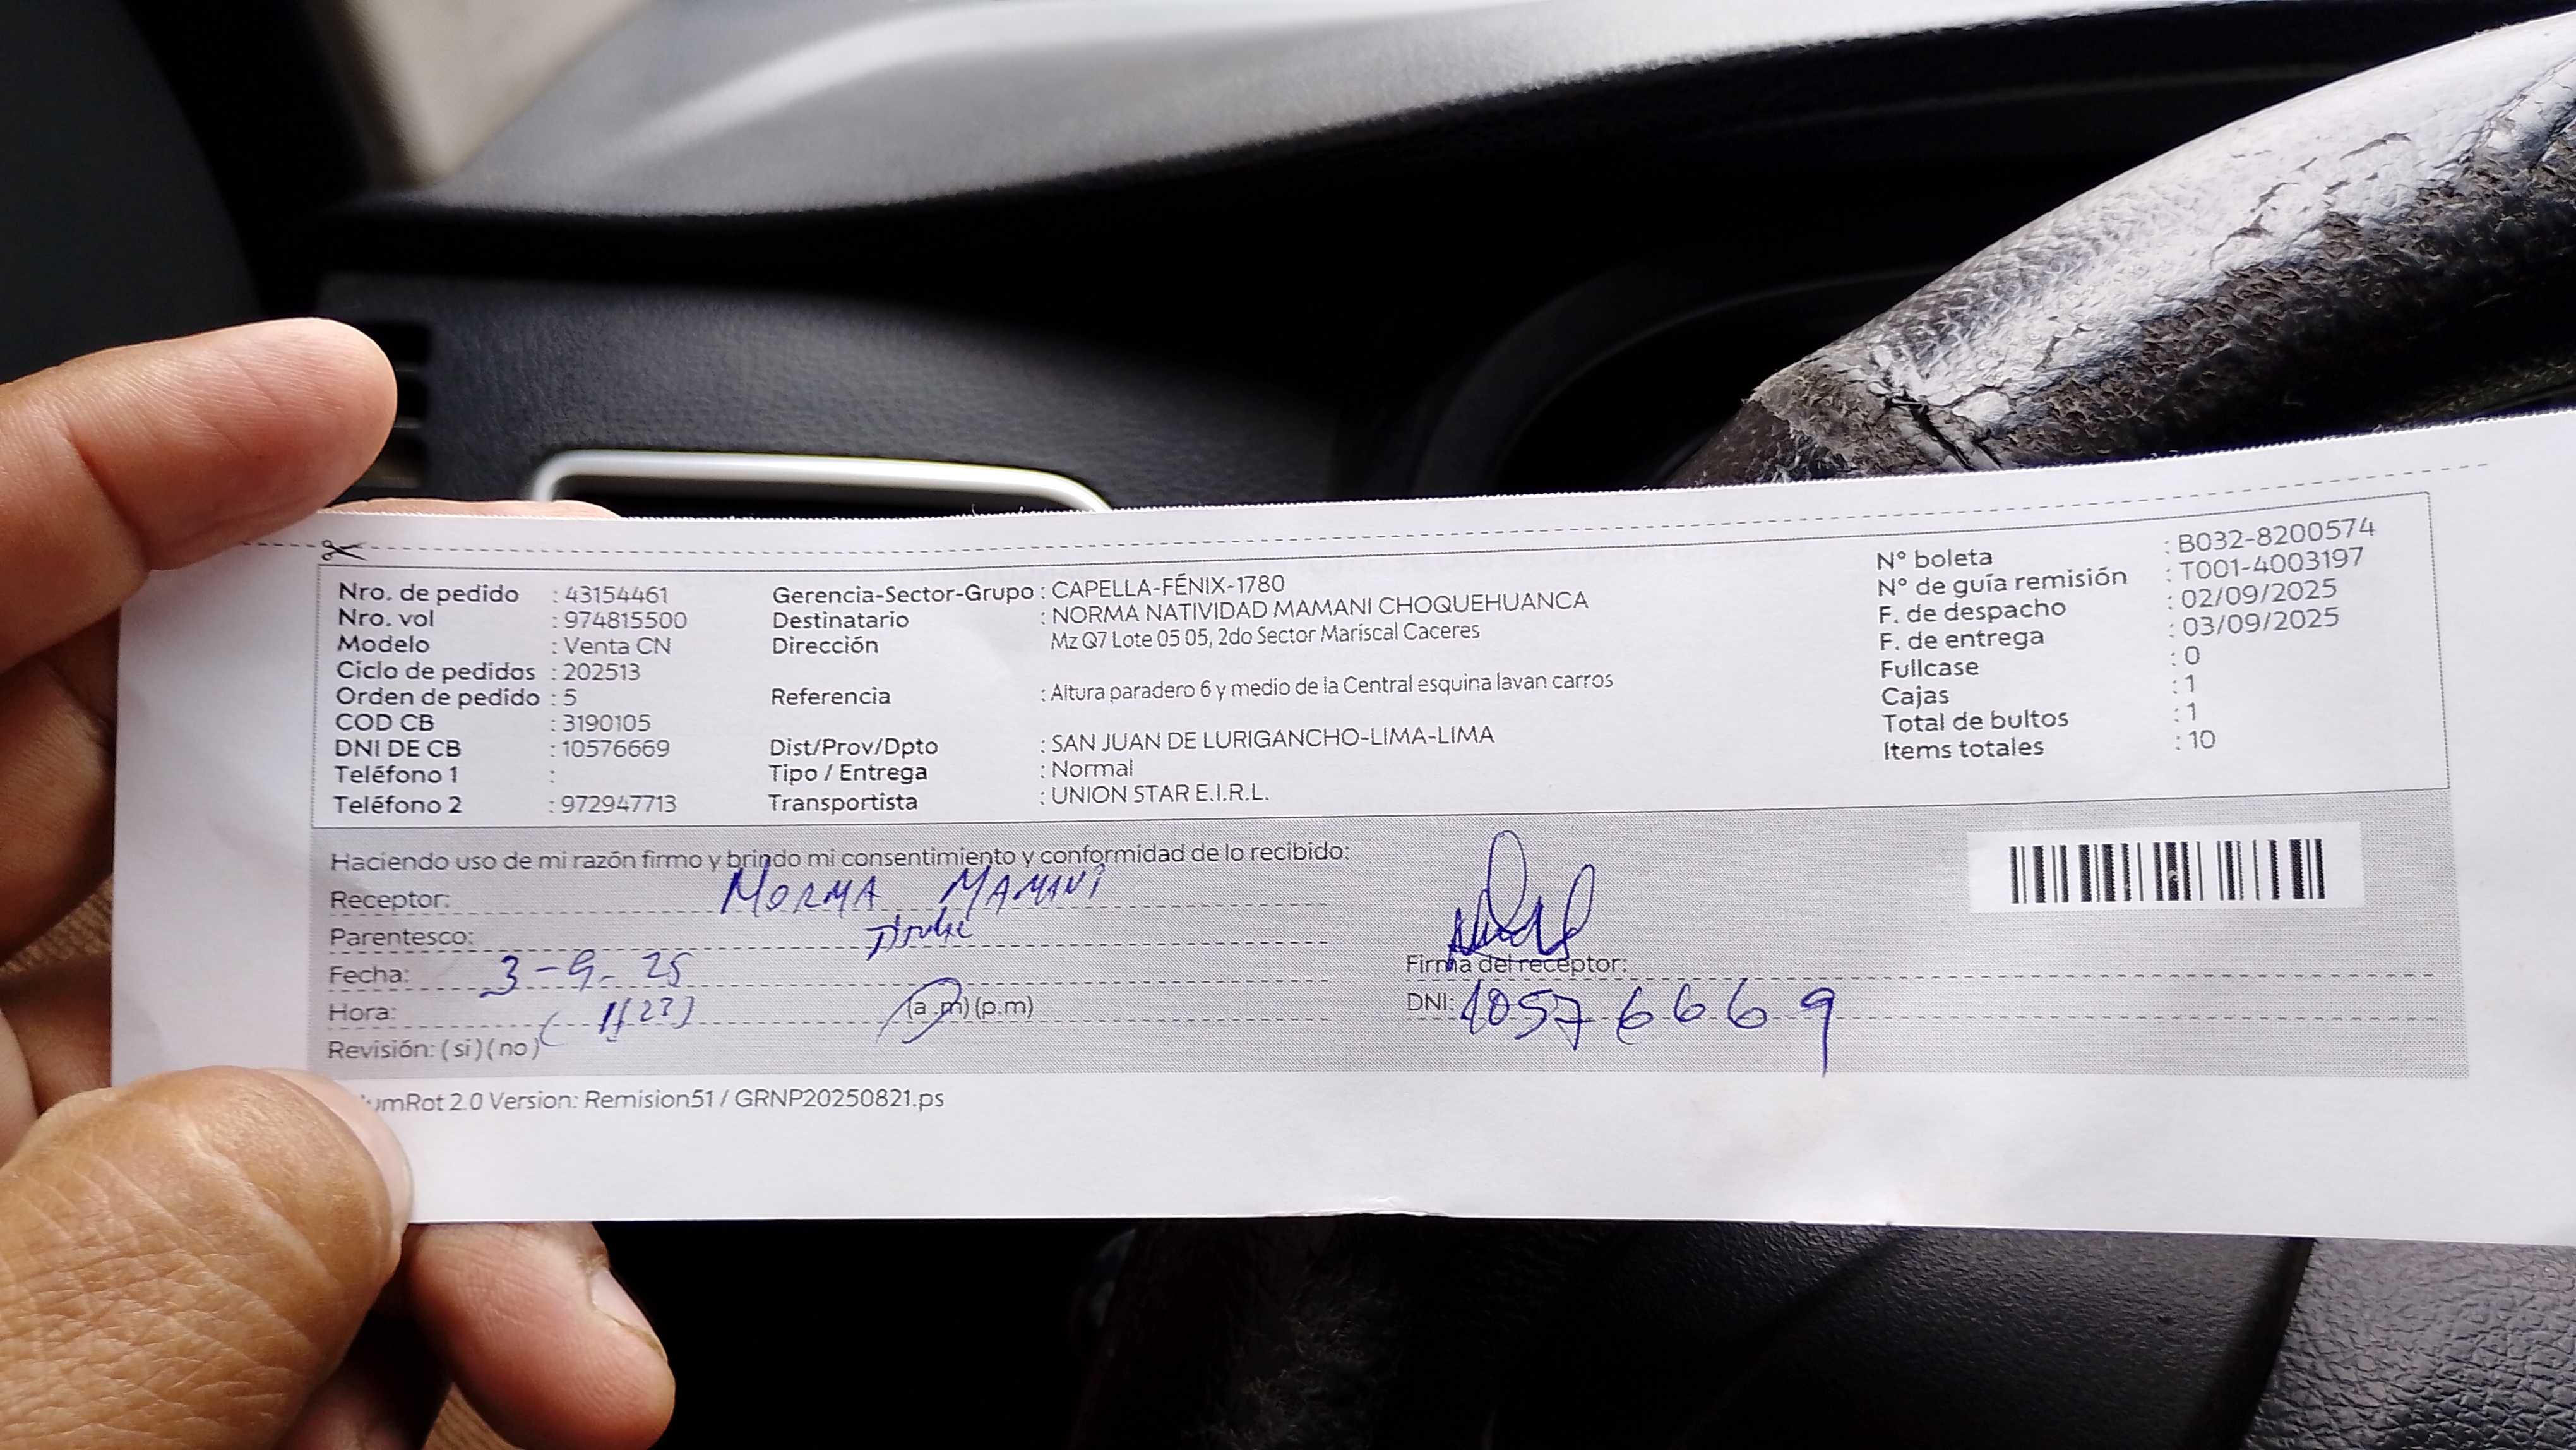 Nro. de pedido : 43154461
Nro. vol : 974815500
Modelo : Venta CN
Ciclo de pedidos : 202513
Orden de pedido : 5
COD CB : 3190105
DNI DE CB : 10576669
Teléfono 1 :
Teléfono 2 : 972947713
Gerencia-Sector-Grupo : CAPELLA-FÉNIX-1780
Destinatario : NORMA NATIVIDAD MAMANI CHOQUEHUANCA
Dirección Mz Q7 Lote 05 05, 2do Sector Mariscal Caceres
Referencia : Altura paradero 6 y medio de la Central esquina lavan carros
Dist/Prov/Dpto : SAN JUAN DE LURIGANCHO-LIMA-LIMA
Tipo / Entrega : Normal
Transportista : UNION STAR E.I.R.L.
N° boleta : B032-8200574
N° de guía remisión : T001-4003197
F. de despacho : 02/09/2025
F. de entrega : 03/09/2025
Fullcase : 0
Cajas : 1
Total de bultos : 1
Items totales : 10
Haciendo uso de mi razón firmo y brindo mi consentimiento y conformidad de lo recibido:
Receptor: NORMA MAMANI
Parentesco:
Fecha: 3-9-25
Hora: (a.m) (p.m)
Revisión: ( si ) ( no )
Firma del receptor:
DNI: 10576669
umRot 2.0 Version: Remision51 / GRNP20250821.ps